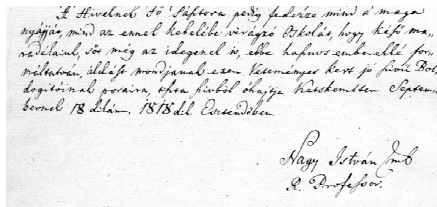 A' Hivelnek Fő Pásztora pedig fedezze mind a' maga
nyáját, mind az ennek kebelébe virágzó Oskolát, hogy késő ma-
radékaink, sőt még az idegenek is, ebbe hasznos emberekké for-
máltatván, áldást mondjanak ezen Veteményes kert jó szívű Bol-
dogítóinak poraira, tiszta szívből óhajtja Ketskeméten Septem-
bernek 18dikán, 1818dik Esztendőben
Nagy István mk
R. Professor.